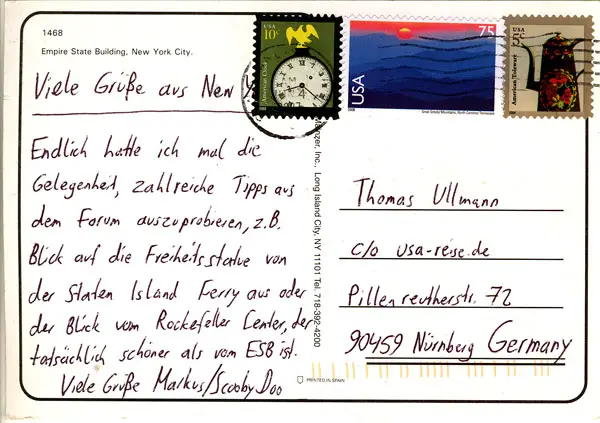 1468
Empire State Building, New York City.
Viele Grüße aus New Y
Endlich hatte ich mal die
Gelegenheit, zahlreiche Tipps aus
dem Forum auszuprobieren, z.B.
Blick auf die Freiheitsstatue von
der Staten Island Ferry aus oder
der Blick vom Rockefeller Center, der
tatsächlich schöner als vom ESB ist.
Viele Grüße Markus/Scooby Doo
PRINTED IN SPAIN
Manzer, Inc., Long Island City, NY 11101 Tel. 718-392-4200
USA
10c
American Clock
75
USA
Great Smoky Mountains, North Carolina/Tennessee
American Toleware
Thomas Ullmann
c/o usa-reise.de
Pillenreutherstr. 72
90459 Nürnberg Germany